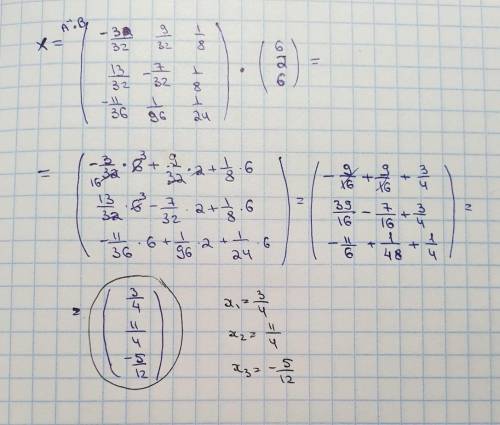 x = A⁻¹·B ( -3/32 9/32 1/8
13/32 -7/32 1/8
-11/36 1/96 1/24 ) · ( 6
2
6 ) =
= ( -3/32 · 6 + 9/32 · 2 + 1/8 · 6
13/32 · 6 - 7/32 · 2 + 1/8 · 6
-11/36 · 6 + 1/96 · 2 + 1/24 · 6 ) = ( -9/16 + 9/16 + 3/4
39/16 - 7/16 + 3/4
-11/6 + 1/48 + 1/4 ) =
= ( 3/4
11/4
-5/12 )
x₁ = 3/4
x₂ = 11/4
x₃ = -5/12